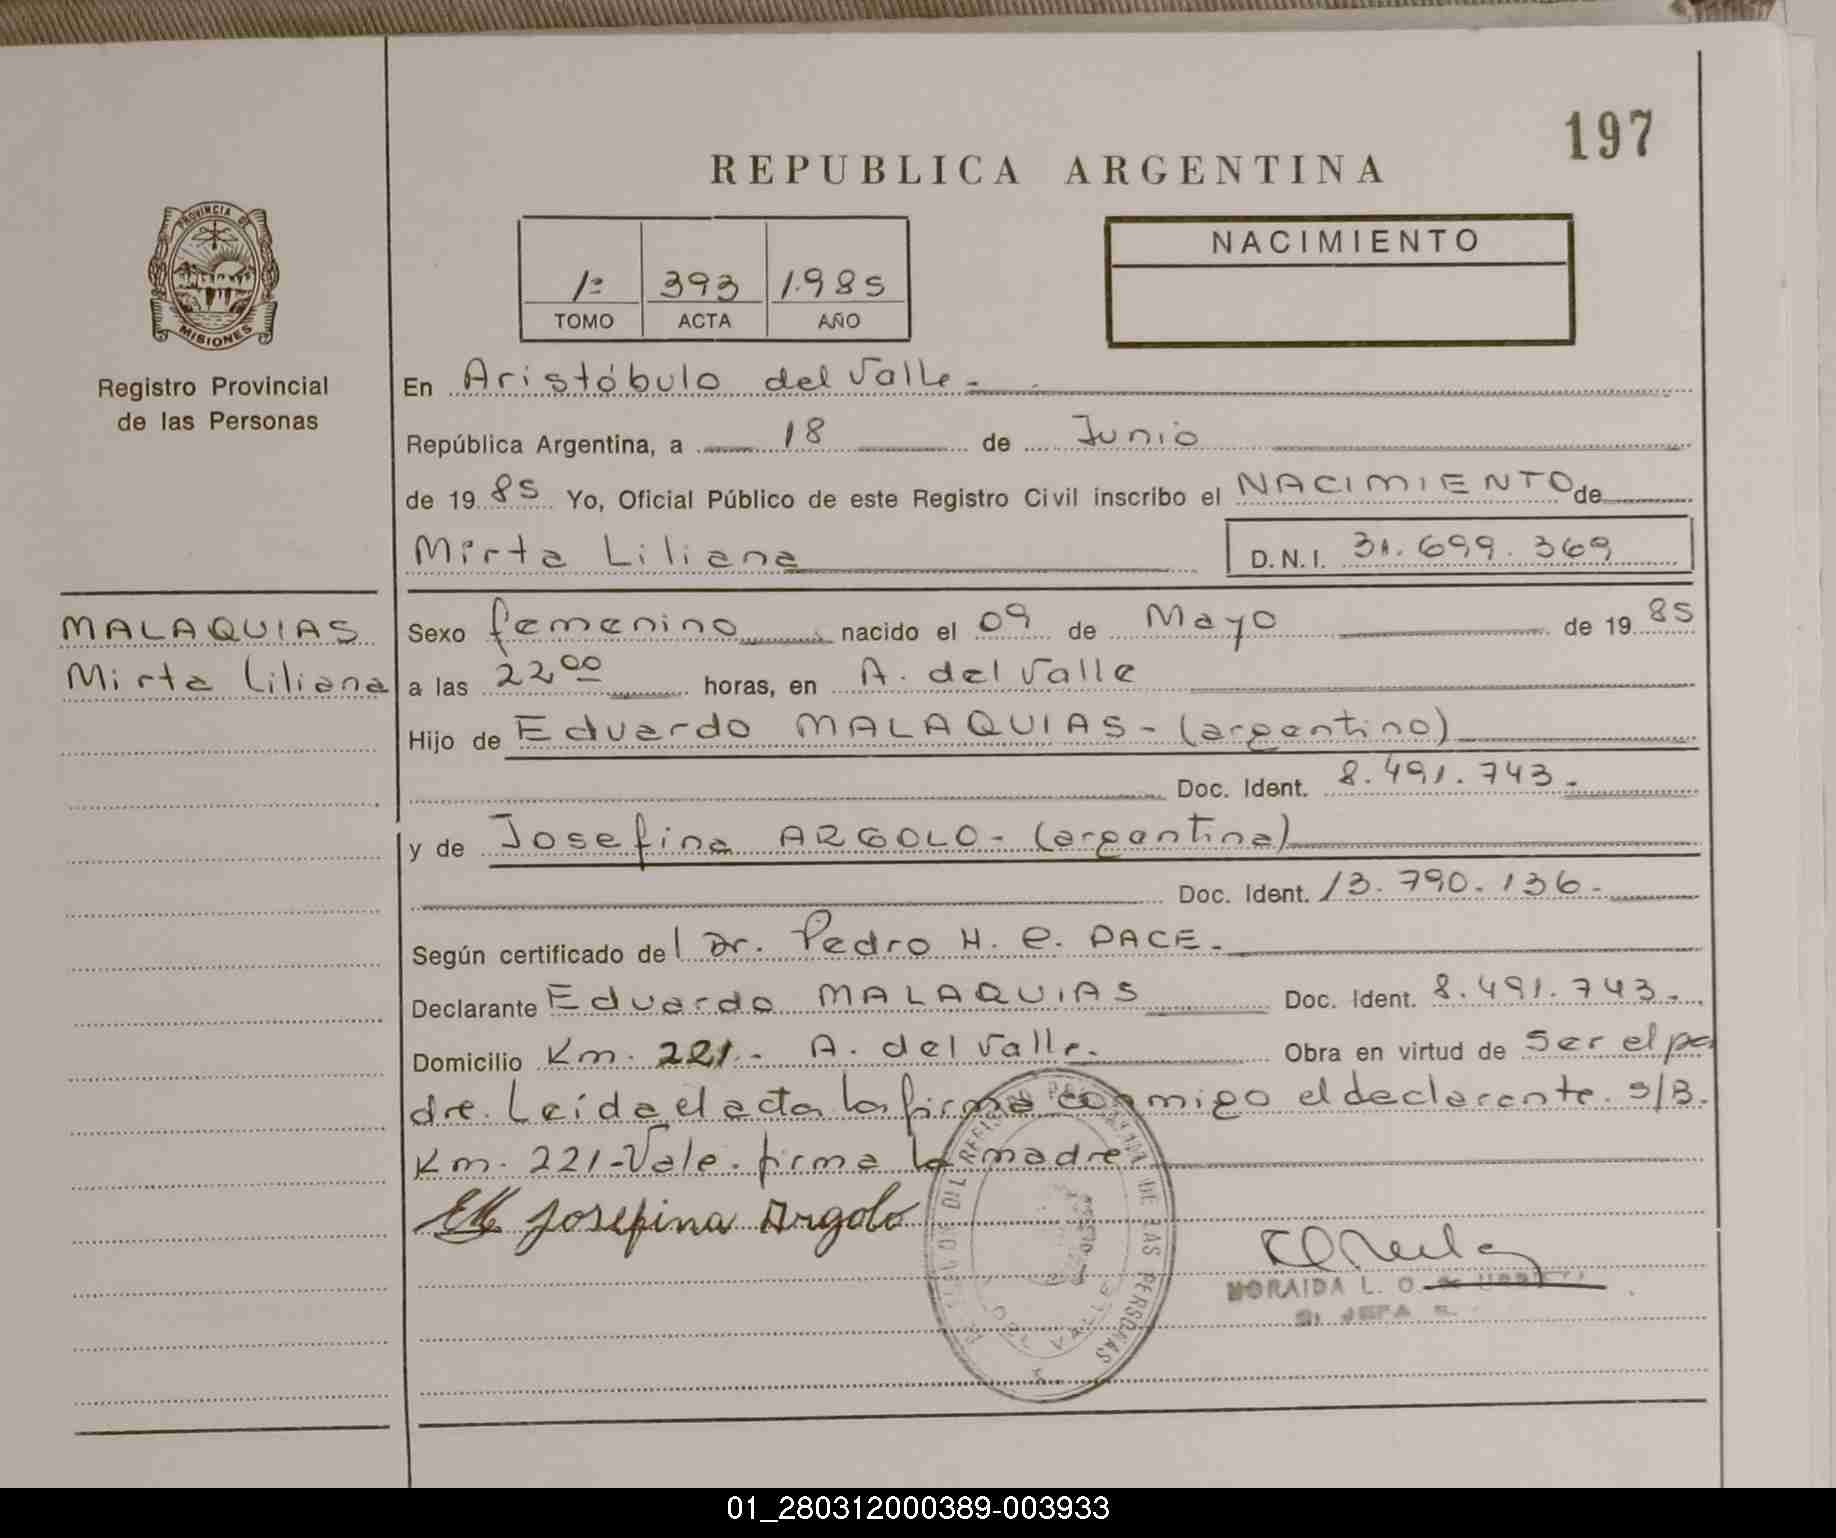 197
REPUBLICA ARGENTINA
PROVINCIA DE
MISIONES
Registro Provincial
de las Personas
1º 393 1.985
TOMO ACTA AÑO
NACIMIENTO
En Aristóbulo del Valle.
República Argentina, a 18 de Junio
de 19 85 Yo, Oficial Público de este Registro Civil inscribo el NACIMIENTO de
Mirta Liliana D.N.I. 31.699.369
MALAQUIAS
Mirta Liliana
Sexo femenino nacido el 09 de Mayo de 19 85
a las 22,00 horas, en A. del Valle
Hijo de Eduardo MALAQUIAS - (argentino)
Doc. Ident. 8.491.743.
y de Josefina ARGOLO - (argentina)
Doc. Ident. 13.790.136.
Según certificado del Dr. Pedro H. C. PACE.
Declarante Eduardo MALAQUIAS Doc. Ident. 8.491.743.
Domicilio Km. 221.- A. del Valle. Obra en virtud de Ser el pa
dre. Leída el acta la firma conmigo el declarante. S/B.
Km. 221-Vale. firma la madre
EM Josefina Argolo
DE LAS PERSONAS
DEL VALLE
NORAIDA L. O. de
JEFA
01_280312000389-003933